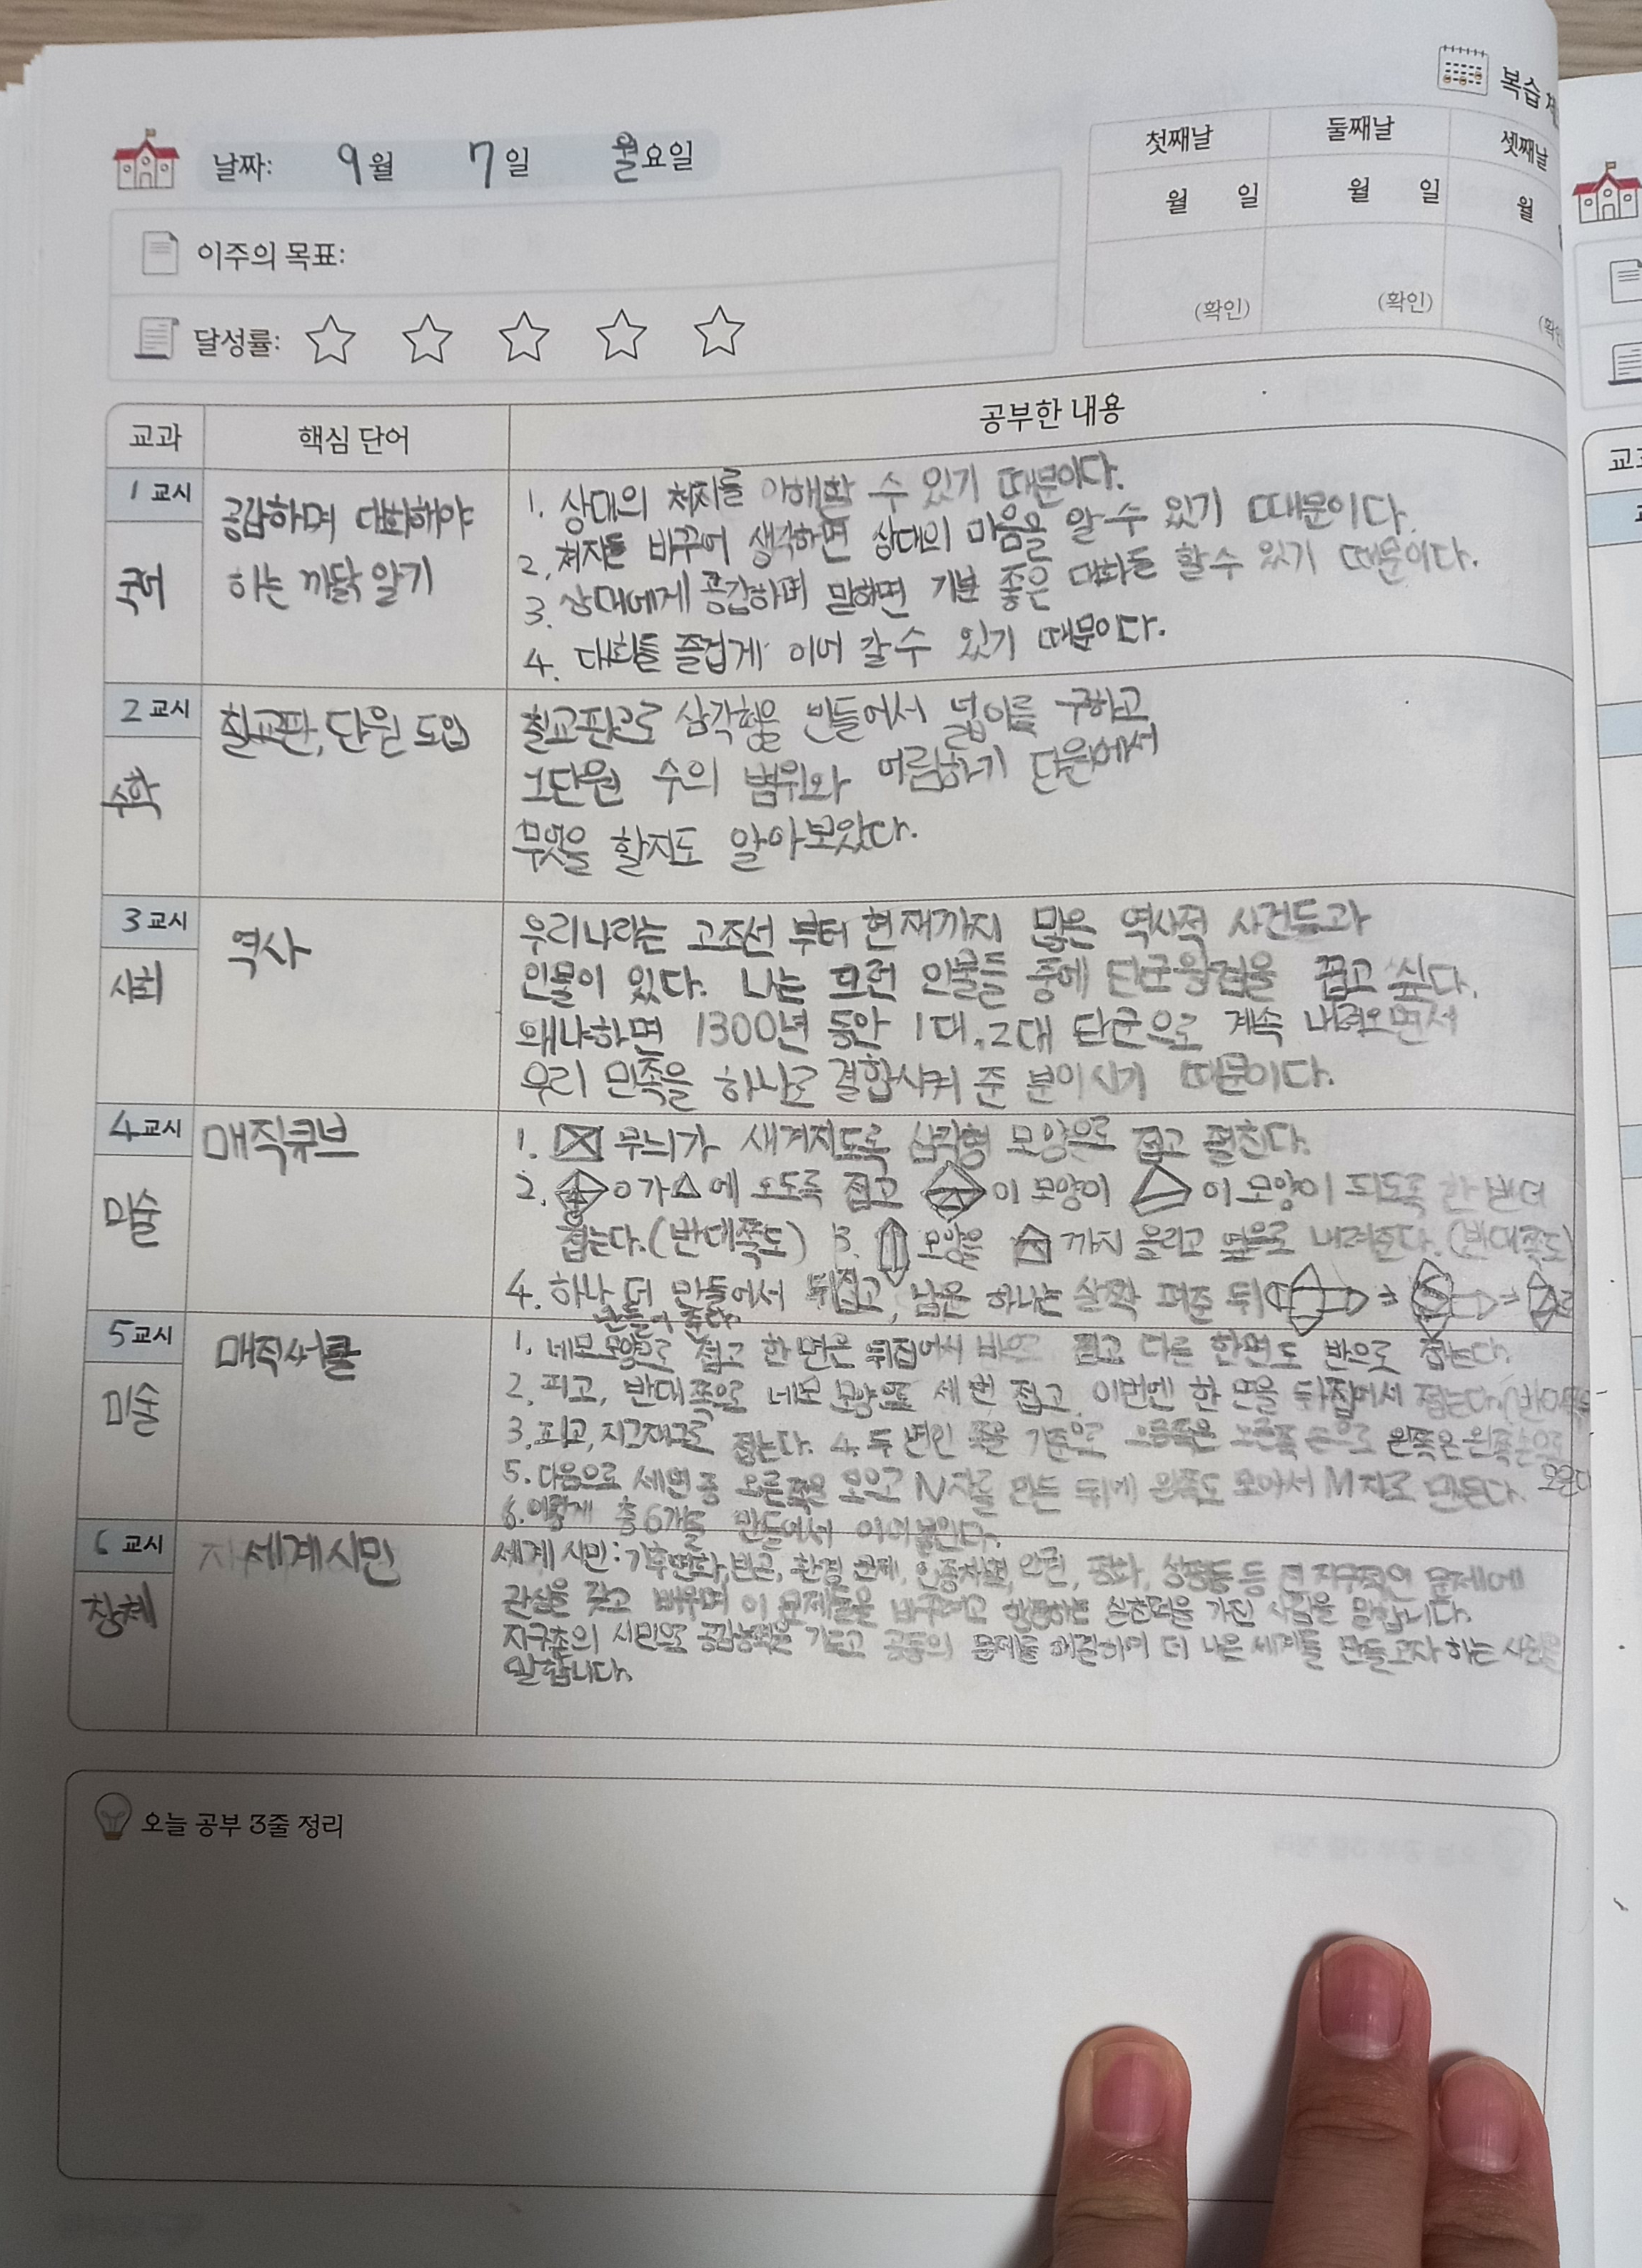 복습
첫째날 둘째날 셋째날
날짜: 9월 7일 월요일
월 일 월 일 월
이주의 목표:
(확인) (확인)
달성률:
교과 핵심 단어 공부한 내용
1 교시
국어
공감하며 대화해야
하는 까닭 알기
1. 상대의 처지를 이해할 수 있기 때문이다.
2. 처지를 바꾸어 생각하면 상대의 마음을 알 수 있기 때문이다.
3. 상대에게 공감하며 말하면 기분 좋은 대화를 할 수 있기 때문이다.
4. 대화를 즐겁게 이어 갈 수 있기 때문이다.
2 교시
수학
칠교판, 단원 도입
칠교판으로 삼각형을 만들어서 넓이를 구하고
1단원 수의 범위와 어림하기 단원에서
무엇을 할지도 알아보았다.
3 교시
사회
역사
우리나라는 고조선 부터 현재까지 많은 역사적 사건들과
인물이 있다. 나는 그런 인물들 중에 단군왕검을 꼽고 싶다.
왜냐하면 1300년 동안 1대, 2대 단군으로 계속 내려오면서
우리 민족을 하나로 결합시켜 준 분이시기 때문이다.
4 교시
미술
매직큐브
1. 무늬가 새겨지도록 삼각형 모양으로 접고 펼친다.
2. 가 에 오도록 접고 이 모양이 이 모양이 되도록 한 번 더
접는다. (반대쪽도) 3. 모양을 까지 올리고 옆으로 내려준다. (반대쪽도)
4. 하나 더 만들어서 뒤집고, 남은 하나는 살짝 펴준 뒤
만들어 준다.
5 교시
미술
매직서클
1. 네모모양으로 접고 한 면은 뒤집어서 반으로 접고 다른 한면도 반으로 접는다.
2. 피고, 반대쪽으로 네모 모양으로 세 번 접고, 이번엔 한 면을 뒤집어서 접는다.
3. 피고, 접는다. 4. 두 번인 쪽을 기준으로 오른쪽은 오른쪽 손으로 왼쪽은 왼쪽 손으로
모은다
5. 다음으로 세번 중 오른쪽은 모으고 N자를 만든 뒤에 왼쪽도 모아서 M자로 만든다.
6. 이렇게 총 6개를 만들어서 이어붙인다.
6 교시
창체
세계시민
세계 시민: 기후변화, 빈곤, 환경 문제, 인종차별, 인권, 평화, 성평등 등 전 지구적인 문제에
관심을 갖고 배우며 이 문제들을 바꾸려고 행동하는 실천력을 가진 사람을 말합니다.
지구촌의 시민으로 공감능력을 기르고 공동의 문제를 해결하여 더 나은 세계를 만들고자 하는 사람을
말합니다.
오늘 공부 3줄 정리